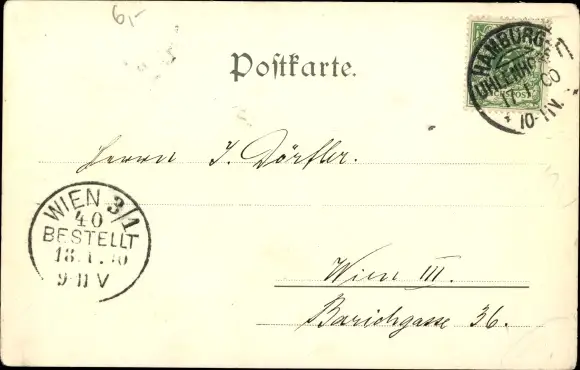 6,-
Postkarte.
HAMBURG
UHLENHORST
17.1.00
10-11V.
Herrn J. Dörfler.
WIEN 3/1
40
BESTELLT
18.1.00
9-11 V
Wien III.
Barichgasse 36.